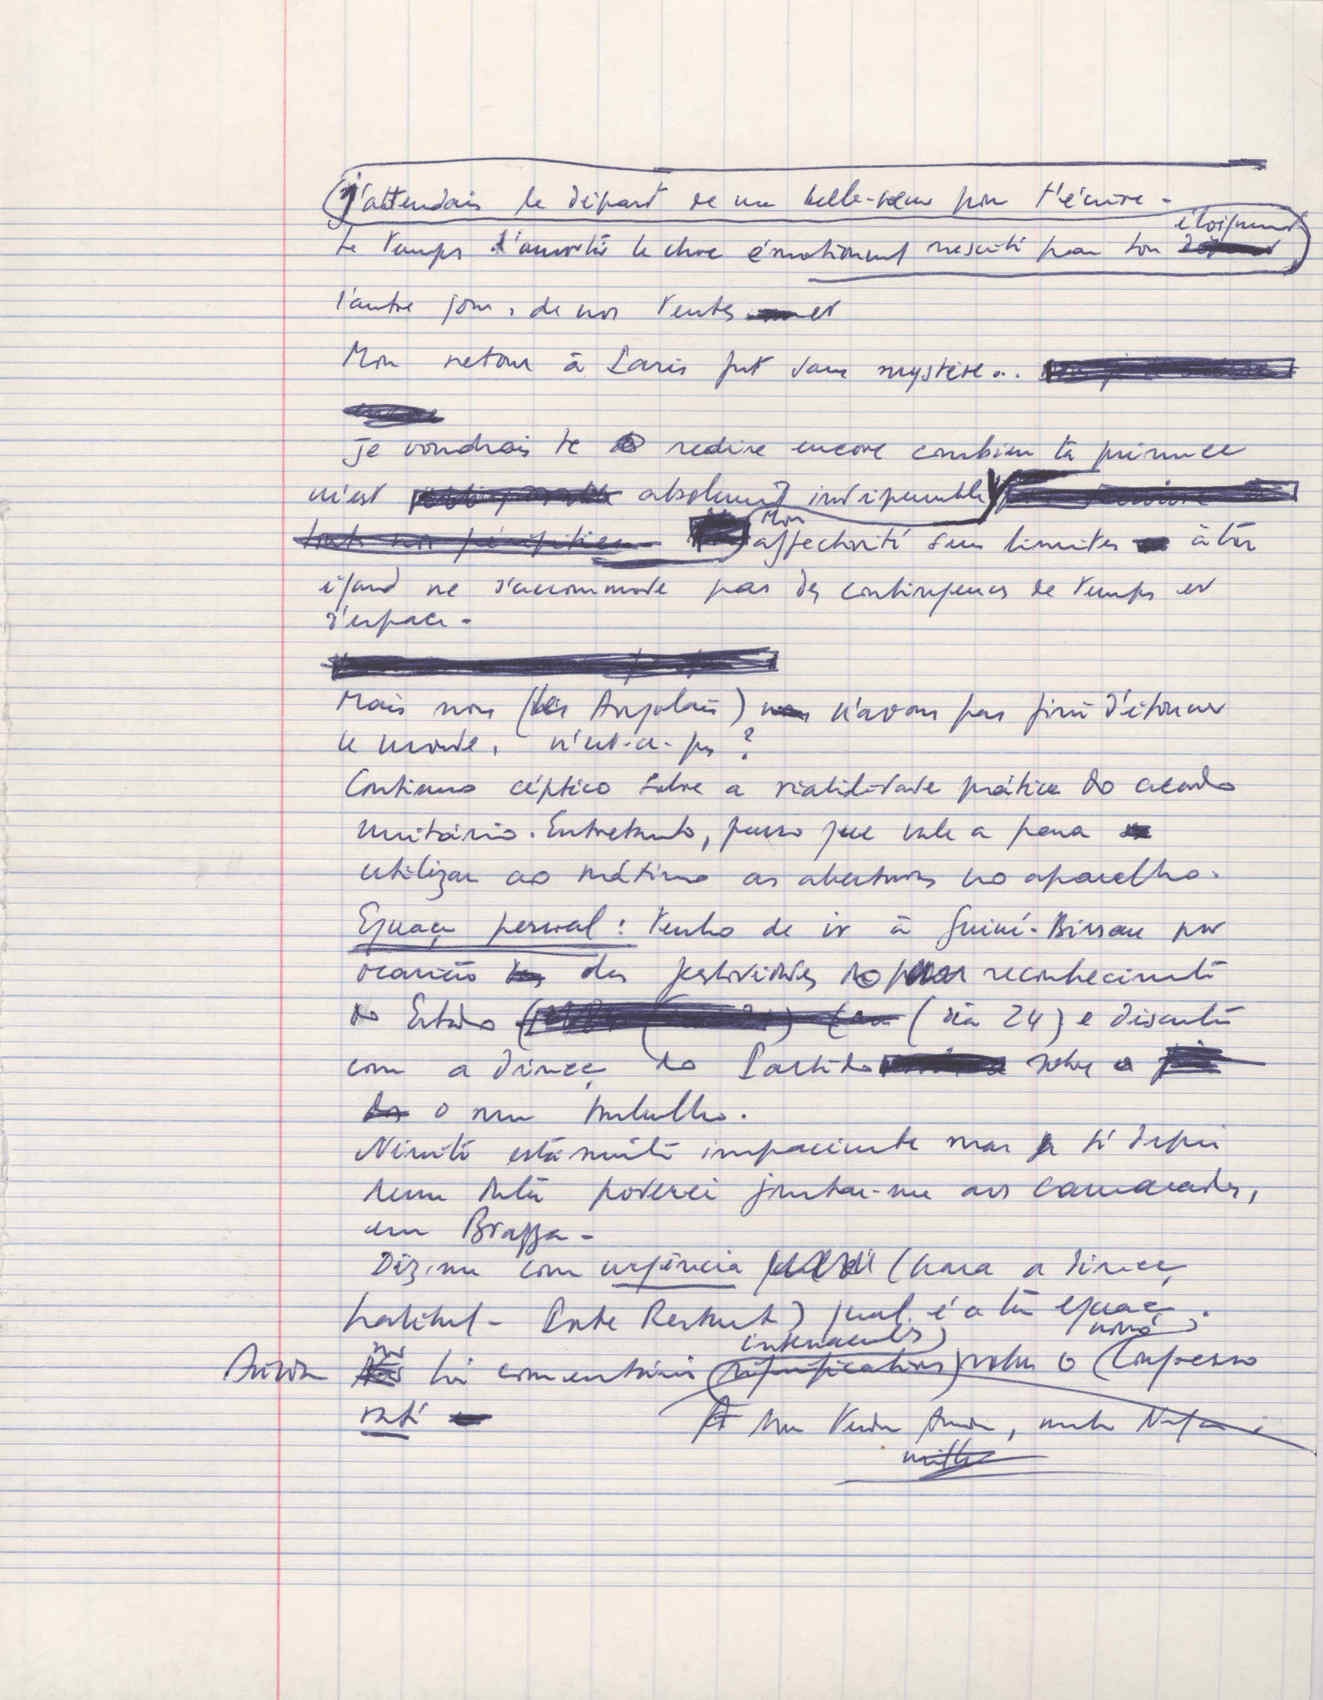 J'attendais le départ de ma belle-sœur pour t'écrire -
le temps d'amortir le choc émotionnel suscité par ton éloignement
l'autre jour, de nos tentes et
Mon retour à Paris fut sans mystère...
Je voudrais te redire encore combien ta présence
m'est absolument indispensable
Mon affectivité sans limites à ton
égard ne s'accommode pas des contingences de temps et
d'espace -
Mais nous (les Angolais) n'avons pas fini d'étonner
le monde, n'est-ce-pas ?
Continuo céptico sobre a viabilidade prática do acordo
unitário. Entretanto, penso que vale a pena
utilizar ao máximo as aberturas no aparelho.
Equaç pessoal : Tenho de ir à Guiné-Bissau por
ocasião das festividades do reconhecimento
do Estado (dia 24) e discutir
com a direcç do Partido sobre
o meu trabalho.
está muito impaciente mas só depois
poderei juntar-me aos camaradas,
em Brazza -
Diz-me com urgência (para a direcç
Poste Restante) qual é a tua equaç.
Ainda não li comentários sobre o Congresso